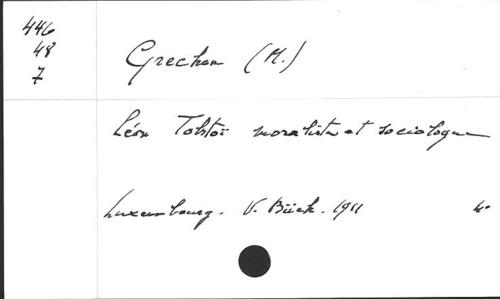 446
48
7
Grechen (M.)
Léon Tolstoï moraliste et sociologue
Luxembourg. V. Bück. 1911 4°